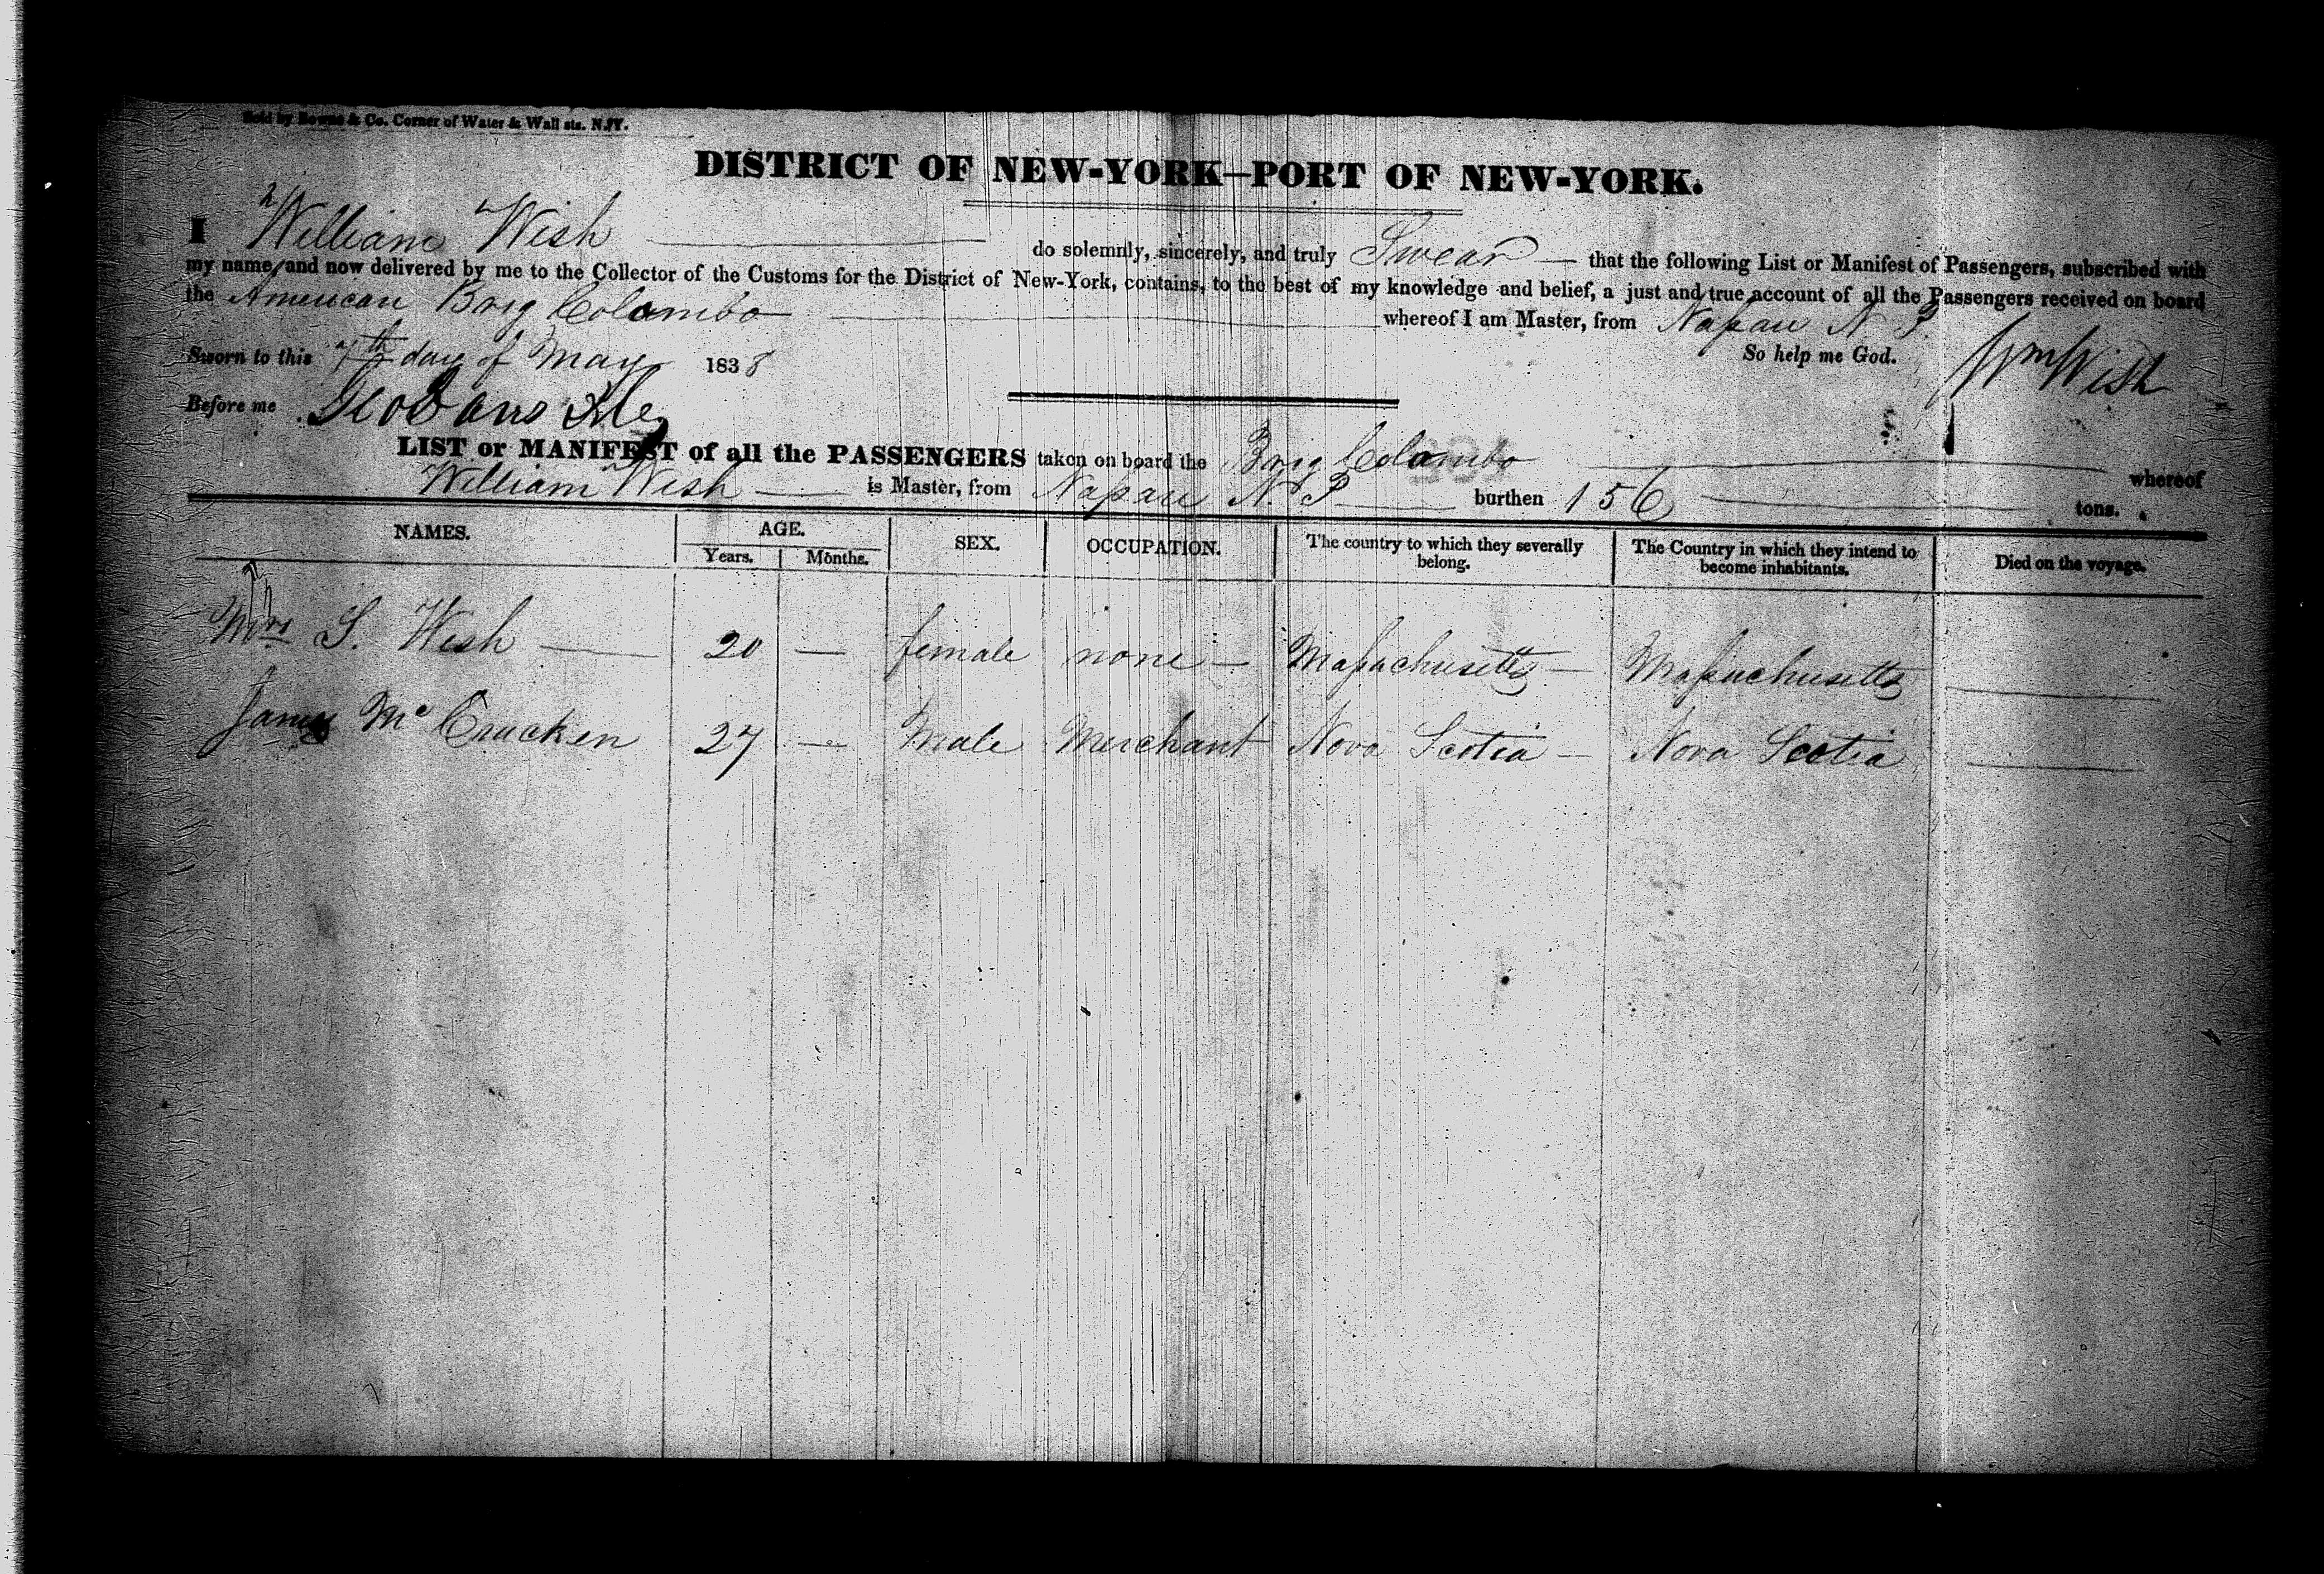 Sold by Bowne & Co. Corner of Water & Wall sts. N.Y.
DISTRICT OF NEW-YORK—PORT OF NEW-YORK.
I William Wish do solemnly, sincerely, and truly Swear that the following List or Manifest of Passengers, subscribed with
my name, and now delivered by me to the Collector of the Customs for the District of New-York, contains, to the best of my knowledge and belief, a just and true account of all the Passengers received on board
the American Brig Colombo whereof I am Master, from Napau N. P
Sworn to this 7th day of May 1838 So help me God. Wm Wish
Before me
LIST or MANIFEST of all the PASSENGERS taken on board the Brig Colombo whereof
William Wish is Master, from Napau N. P burthen 156 tons.
NAMES. AGE. SEX. OCCUPATION. The country to which they severally belong. The Country in which they intend to become inhabitants. Died on the voyage.
Years. Months.
Mrs S. Wish — 20 — female none — Massachusetts — Massachusetts —
James Mc Cracken 27 — Male Merchant Nova Scotia — Nova Scotia —